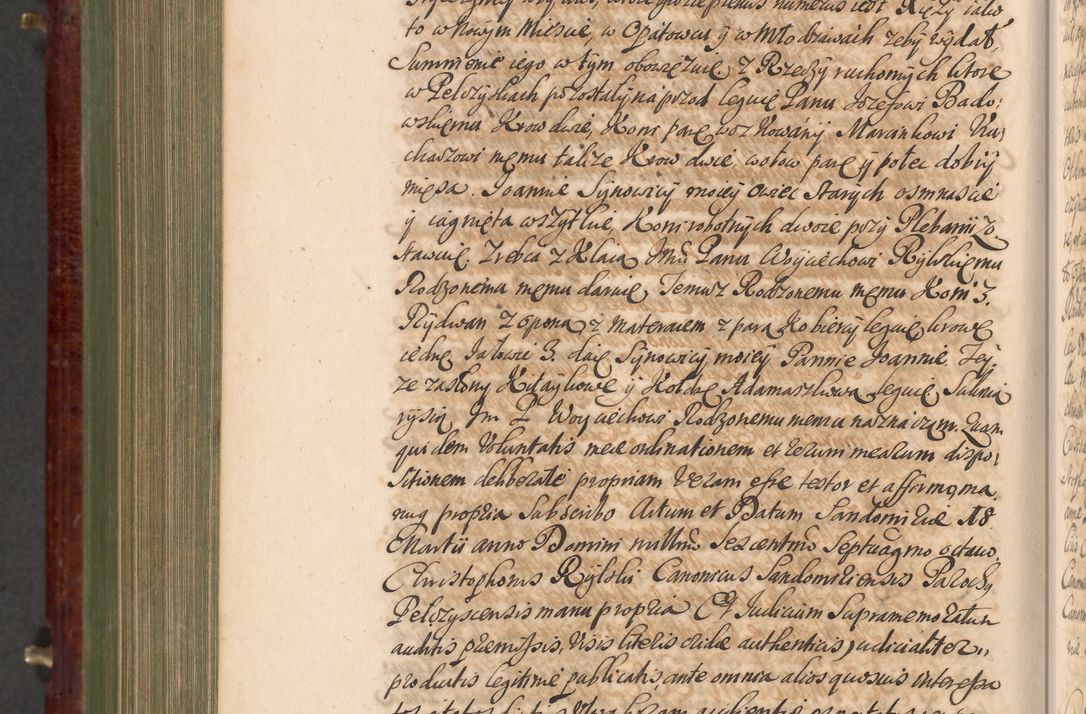 to w Nowym Miescie, w Opatowcu y w Młodziwach zeby wydał,
Summienie iego w tym obowięzuię, z Rzeczy ruchomych ktore
w Pelczyskach pozostały na przod leguię Panu Jozefowi Bado,
wskiemu Krow dwie, Koni parę woz Kowany Marcinkowi Ku,
charzowi memu takze Krow dwie, wołow parę y połec dobry
mięsa. Joannie Synowicy moiey owiec starych osmnascie
y iagnięta wszytkie, Koni robotnych dwoie przy Plebanij zo,
stawuię. Zrebca z Klacą Jmci Panu Woyciechowi Rylskiemu
Rodzonemu memu daruię, Temusz Rodzonemu memu Koni 3.
Rydwan z oponą, z materacem z parą Kobiercy leguię krowę
iednę Jałowic 3. daię Synowicy moiey Pannie Joannie. Tey
ze zasłony Kitaykowe y Kołdrę Adamaszkową leguię, Suknie
rysię Jm P. Woyciechowi Rodzonemu memu naznaczam. Quam
quidem Voluntatis meæ ordinationem et rerum mearum dispo,
sitionem deliberate propriam veram esse testor et affirmo, ma,
nuq propria Subscribo Actum et Datum Sandomiriæ 18
Martii anno Domini millmo Sexcentmo Septuagmo octavo.
Christophorus Rylski Canonicus Sandomiriensis Parochq
Pelczyscensis manu propria Et Judicium Supramemoratum
auditis præmissis, visis literis eridæ authenticis, judicialiter,,
productis legitime publicatis, ante omnia alios quosuis interessa